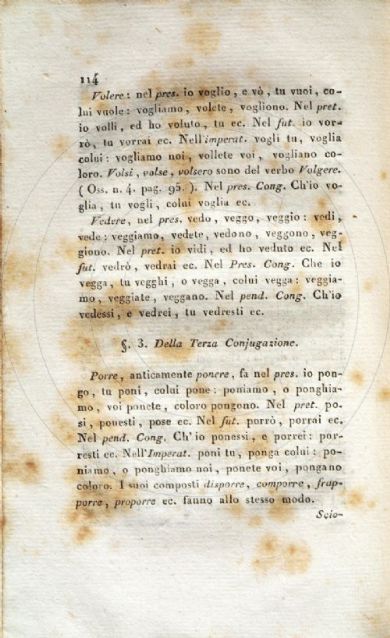 114
Volere: nel pres. io voglio, e vò, tu vuoi, co-
lui vuole: vogliamo, volete, vogliono. Nel pret.
io volli, ed ho voluto, tu ec. Nel fut. io vor-
rò, tu vorrai ec. Nell'imperat. vogli tu, voglia
colui: vogliamo noi, vollete voi, vogliano co-
loro. Volsi, volse, volsero sono del verbo Volgere.
(Oss. n. 4. pag. 95.). Nel pres. Cong. Ch'io vo-
glia, tu vogli, colui voglia ec.
Vedere, nel pres. vedo, veggo, veggio: vedi,
vede: veggiamo, vedete, vedono, veggono, veg-
giono. Nel pret. io vidi, ed ho veduto ec. Nel
fut. vedrò, vedrai ec. Nel Pres. Cong. Che io
vegga, tu vegghi, o vegga, colui vegga: veggia-
mo, veggiate, veggano. Nel pend. Cong. Ch'io
vedessi, e vedrei, tu vedresti ec.
§. 3. Della Terza Conjugazione.
Porre, anticamente ponere, fa nel pres. io pon-
go, tu poni, colui pone: poniamo, o ponghia-
mo, voi ponete, coloro pongono. Nel pret. po-
si, ponesti, pose ec. Nel fut. porrò, porrai ec.
Nel pend. Cong. Ch'io ponessi, e porrei: por-
resti ec. Nell'Imperat. poni tu, ponga colui: po-
niamo, o ponghiamo noi, ponete voi, pongano
coloro. I suoi composti disporre, comporre, frap-
porre, proporre ec. fanno allo stesso modo.
Scio-